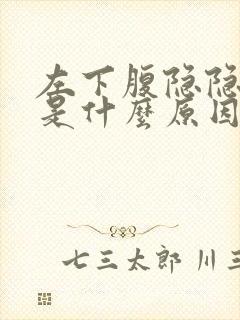 左下腹隐隐
是什麼原因
七三太郎 川三